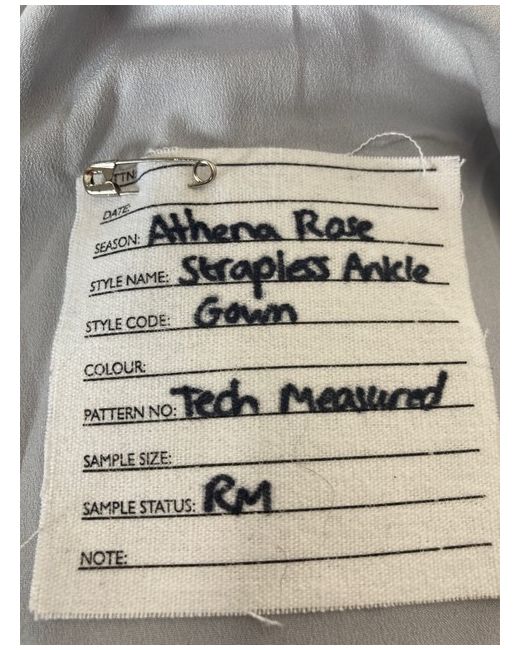 TTN
DATE:
SEASON: Athena Rose
STYLE NAME: Strapless Ankle
STYLE CODE: Gown
COLOUR:
PATTERN NO: Tech Measured
SAMPLE SIZE:
SAMPLE STATUS: RM
NOTE: